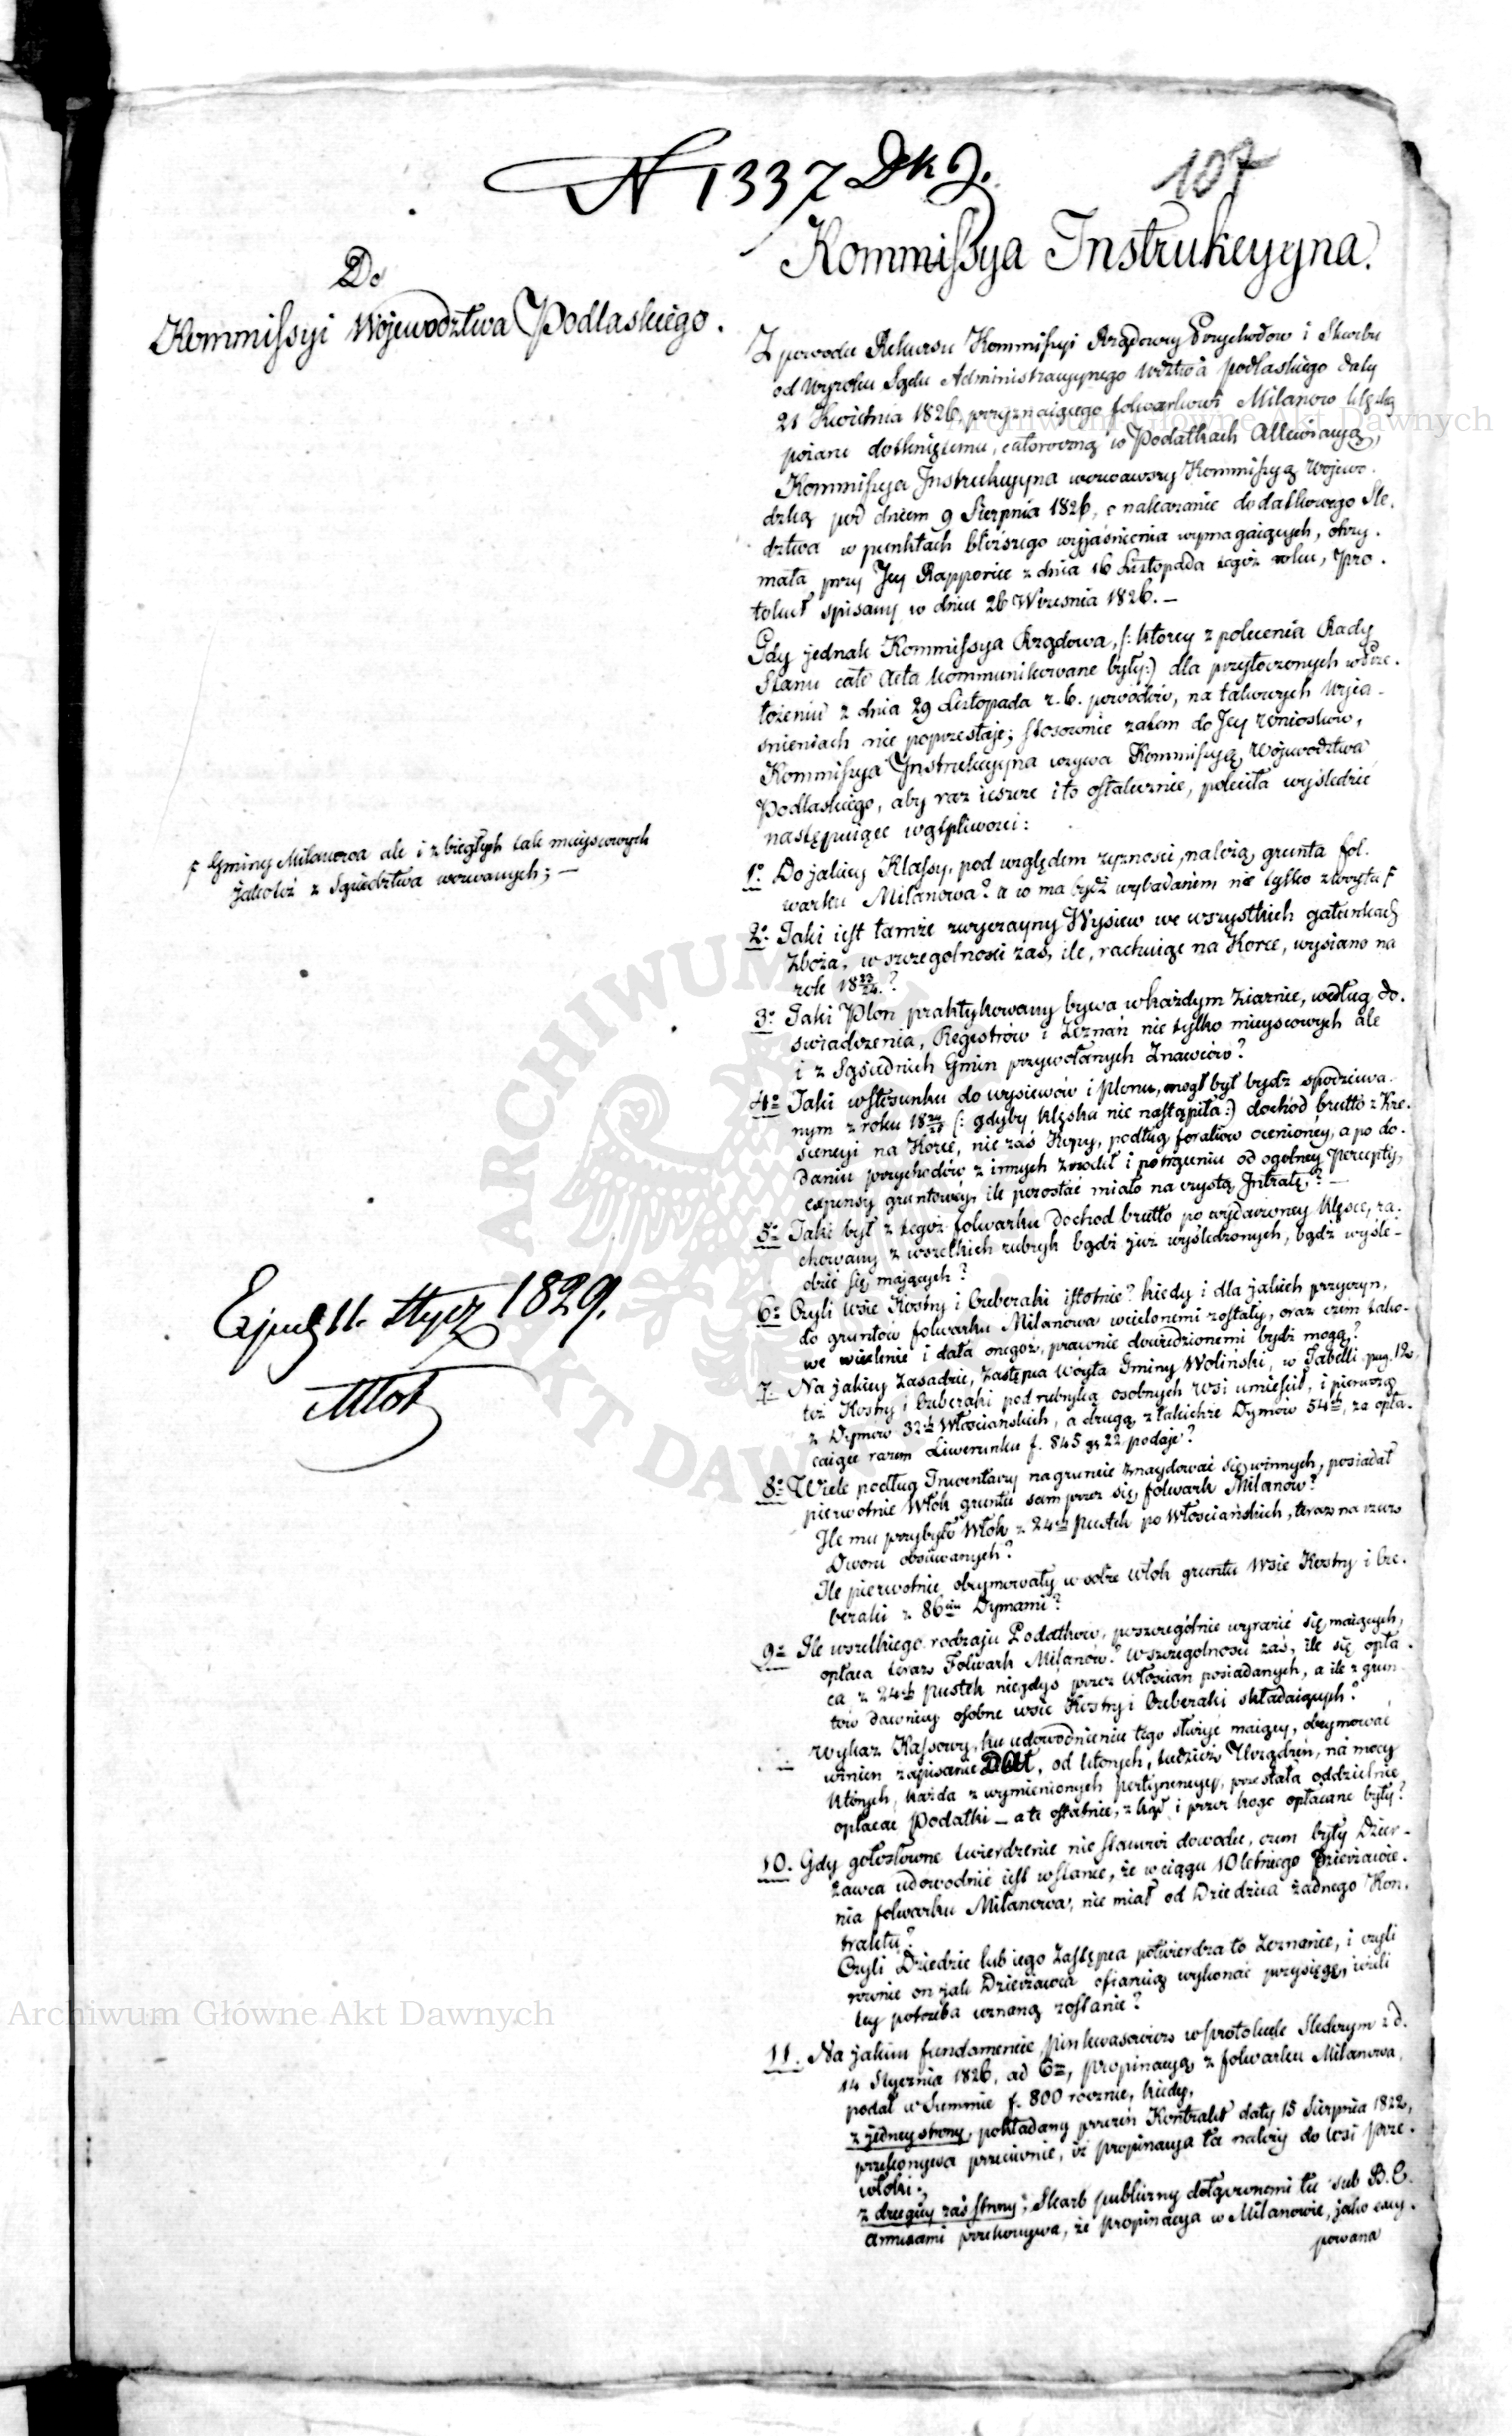 N 1337 Dk J.
107
Kommissya Instrukcyyna.
Do
Kommissyi Województwa Podlaskiego.
Z powodu Rekursu Kommissyi Rządowey Przychodów i Skarbu
od Wyroku Sądu Administracyynego Wdztwa podlaskiego daty
21 Kwietnia 1826, przyznaiącego folwarkowi Milanow klęską
pożaru dotkniętemu, całoroczną w Podatkach Allewiacyą,
Kommissya Instrukcyyna wezwawszy Kommissyą Wojewo.
dzką pod dniem 9 Sierpnia 1826, o nakazanie dodatkowego Sle.
dztwa w punktach bliższego wyjaśnienia wymagaiących, otrzy.
mała przy Jey Rapporcie z dnia 16 Listopada tegoż roku, Pro.
tokuł spisany w dniu 26 Wrzesnia 1826. —
Gdy jednak Kommissya Rządowa, (: którey z polecenia Rady
Stanu całe Acta kommunikowane były:) dla przytoczonych w Prze.
łożeniu z dnia 29 Listopada r. b. powodów, na takowych wyia-
snieniach nie poprzestaje; stosownie zatem do Jey wniosków,
Kommissya Instrukcyyna wzywa Kommissyą Województwa
Podlaskiego, aby raz ieszcze i to ostatecznie, poleciła wyśledzić
następuiące wątpliwości:
1º Do jakiey Klassy, pod względem żyzności, należą grunta fol.
warku Milanowa? a to ma bydź wybadaniem nie tylko z Woyta F
F Gminy Milanowa ale i z biegłych tak mieyscowych
jakoteż z Sąsiedztwa wezwanych; —
2º Jaki iest tamże zwyczayny Wysiew we wszystkich gatunkach
Zboża, w szczegolności zaś, ile, rachuiąc na Korce, wysiano na
rok 18 23/24.?
3º Jaki Plon praktykowany bywa w każdym Ziarnie, według do.
świadczenia, Regestrów i Zeznań nie tylko mieyscowych ale
i z Sąsiednich Gmin przywołanych Znawców?
4º Jaki w stosunku do wysiewów i plonu, mogł był bydź spodziewa.
nym z roku 18 24/25 (: gdyby klęska nie nastąpiła:) dochód brutto z Kre.
scencyi na Korce, nie zaś Kopy, podług foraliow ocenioney, a po do.
daniu przychodów z innych zrodeł i potrąceniu od ogolney Percepty,
expensy gruntowey, ile pozostać miało na czystą Intratę? —
5º Jaki był z tegoż folwarku dochod brutto po wydarzoney klęsce, ra.
chowany z wszelkich rubryk bądź już wyśledzonych, bądź wyśle-
dzić się mających?
6º Czyli wsie Kostry i Cuberaki istotnie? kiedy i dla jakich przyczyn,
do gruntów folwarku Milanowa wcielonemi zostały, oraz czem tako-
we wcielenie i data onegoż, prawnie dowiedzionemi bydź mogą?
7. Na jakiey zasadzie, Zastępca Wóyta Gminy Woliński, w Tabelli pag. 12,
też Kostry i Cuberaki pod rubryką osobnych wsi umieścił, i pierwszą
z Dymów 32ch Włościańskich, a drugą z takichże Dymów 54ch, za opła.
caiące razem Liwerunku f. 845 gr 22 podaje?
8º Wiele podług Inwentarzy na gruncie znaydować się winnych, posiadał
pierwotnie Włók gruntu sam przez się, folwark Milanów?
Ile mu przybyło Włók z 24ch Pustek po Włościańskich, teraz na rzecz
Dworu obsiewanych?
Ile pierwotnie obeymowały w sobie włok gruntu Wsie Kostry i Cu.
beraki z 86 Dymami?
9º Ile wszelkiego rodzaju Podatków, poszczególnie wyrazić się maiących,
opłaca teraz Folwark Milanów? w szczegolności zaś, ile się opła.
ca z 24ch pustek niegdyś przez Włościan posiadanych, a ile z grun.
tów dawniey osobne wsie Kostry i Cuberaki składaiących?
Wykaz Kassowy, ku udowodnieniu tego służyć maiący, obeymować
winien zapisanie Dat, od których, tudzież Urządzeń, na mocy
których, każda z wymienionych pertynencyy, przestała oddzielnie
opłacać Podatki — a te ostatnie, z kąd i przez kogo opłacane były?
10. Gdy gołosłowne twierdzenie nie stanowi dowodu, czem były Dzier-
żawca udowodnić iest w stanie, że w ciągu 10letniego Dzierżawie.
nia folwarku Milanowa, nie miał od Dziedzica żadnego Kon.
traktu?
Czyli Dziedzic lub iego Zastępca potwierdza to Zeznanie, i czyli
równie on jak Dzierżawca ofiaruią wykonać przysięgę, ieżeli
tey potrzeba uznaną zostanie?
11. Na jakim fundamencie Pinkwasowicz w protokule Sledczym z d.
14 Stycznia 1826, ad 6m, propinacyą z folwarku Milanowa,
podał w Summie f. 800 rocznie, kiedy,
z jedney strony, pokładany przezeń Kontrakt daty 15 Sierpnia 1822,
przekonywa przeciwnie, iż propinacya ta należy do wsi Prze.
włoki;
z drugiey zaś strony, Skarb publiczny dołączonemi tu sub B. C.
Annexami przekonywa, że propinacya w Milanowie, jako exey.
powana
Exped 11. Stycz 1829.